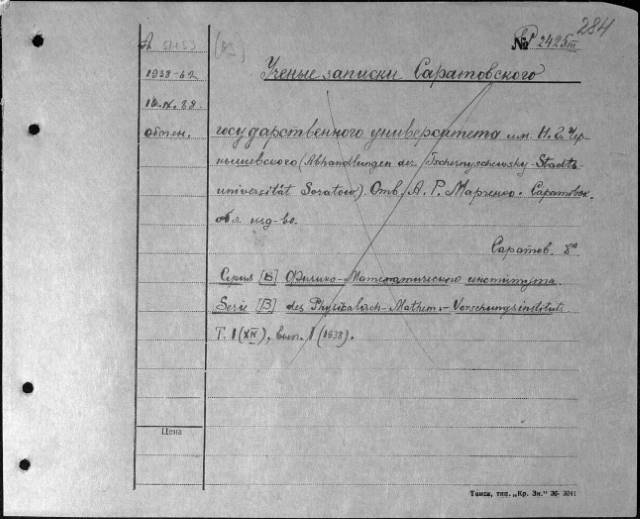 284
№ 2425
А 5153
1938-62
Ученые записки Саратовского
16.IX.88
обмен.
государственного университета им. Н. Г. Чер-
нышевского (Abhandlungen der Tschernyschewsky-Staats-
universität Saratow). Отв. А. Р. Марченко. Саратовск.
обл. изд-во.
Саратов. 8°
Серия [В] Физико-Математического института.
Serie [B] des Physikalisch-Mathem.-Vorschungsinstituts
Т. I (XIV), вып. I (1938).
Цена
Томск, тип. „Кр. Зн.“ 36-3041